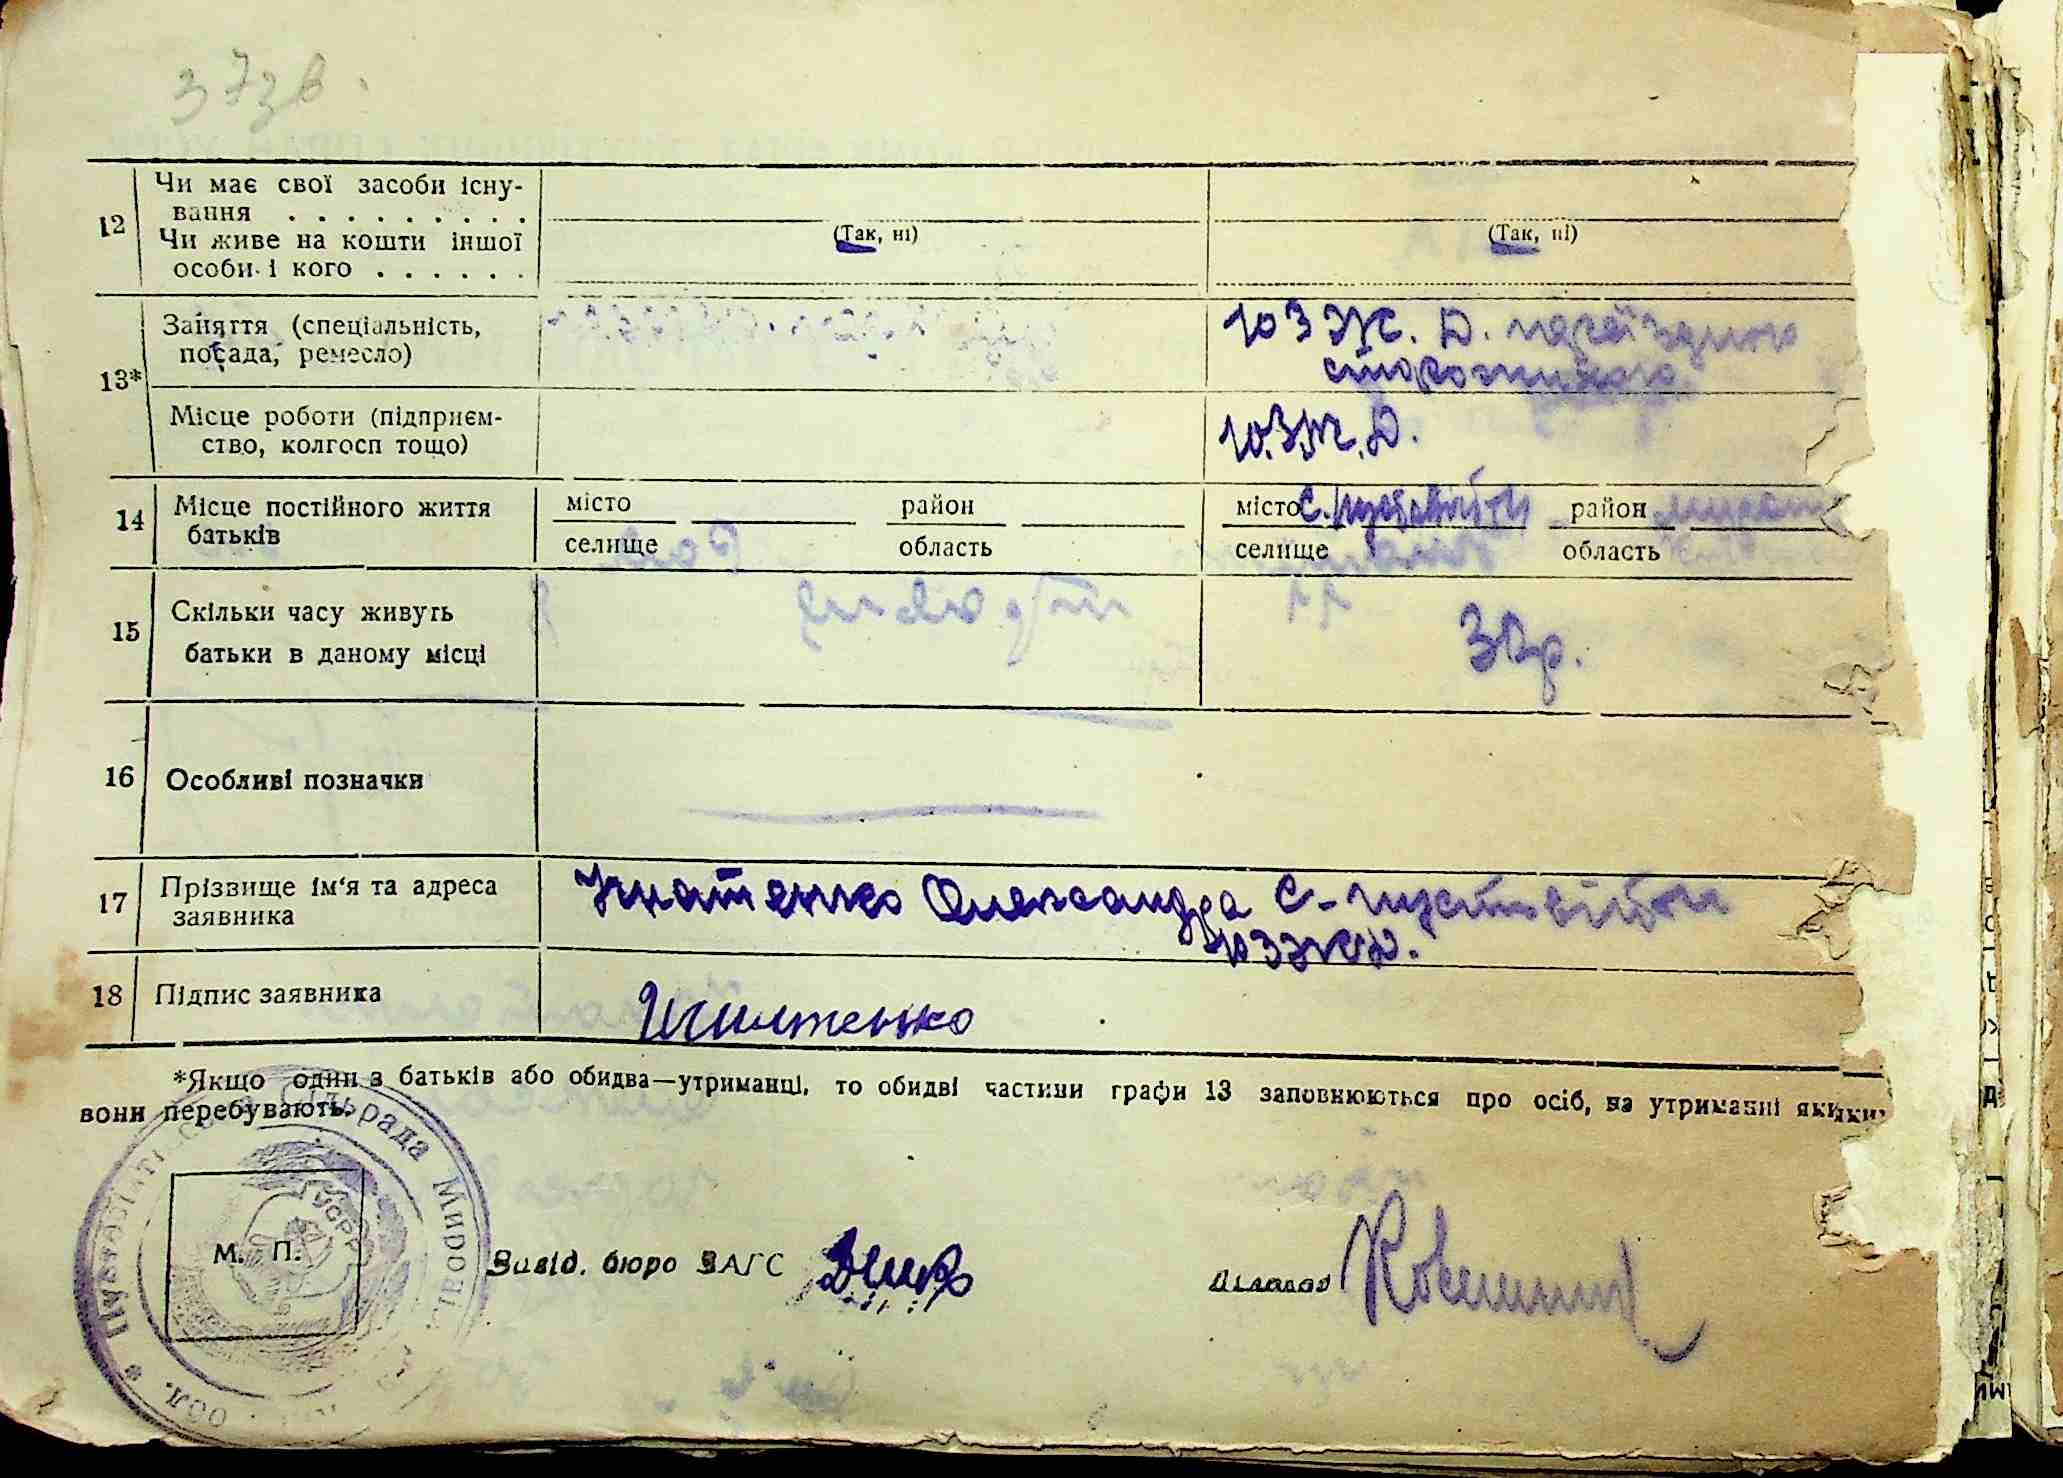 373 в.
12
Чи має свої засоби існу-
вання . . . . . . . . .
Чи живе на кошти іншої
особи і кого . . . . . .
(Так, ні)
(Так, ні)
13*
Заняття (спеціальність,
посада, ремесло)
Ю З Ж. Д. переїздного
сторожика
Місце роботи (підприєм-
ство, колгосп тощо)
Ю.З.Ж.Д.
14
Місце постійного життя
батьків
місто район
селище область
місто с. Пустовійти район
селище область
15
Скільки часу живуть
батьки в даному місці
3 Гр.
16
Особливі позначки
17
Прізвище ім'я та адреса
заявника
Ігнатенко Олександра с. Пустовійти
ЮЗЖД.
18
Підпис заявника
Игнатенко
*Якщо один з батьків або обидва—утриманці, то обидві частини графи 13 заповнюються про осіб, на утриманні яких
вони перебувають.
Сільрада Мироп
УСРР
обл.
М. П.
Завід. бюро ЗАГС
Діловод